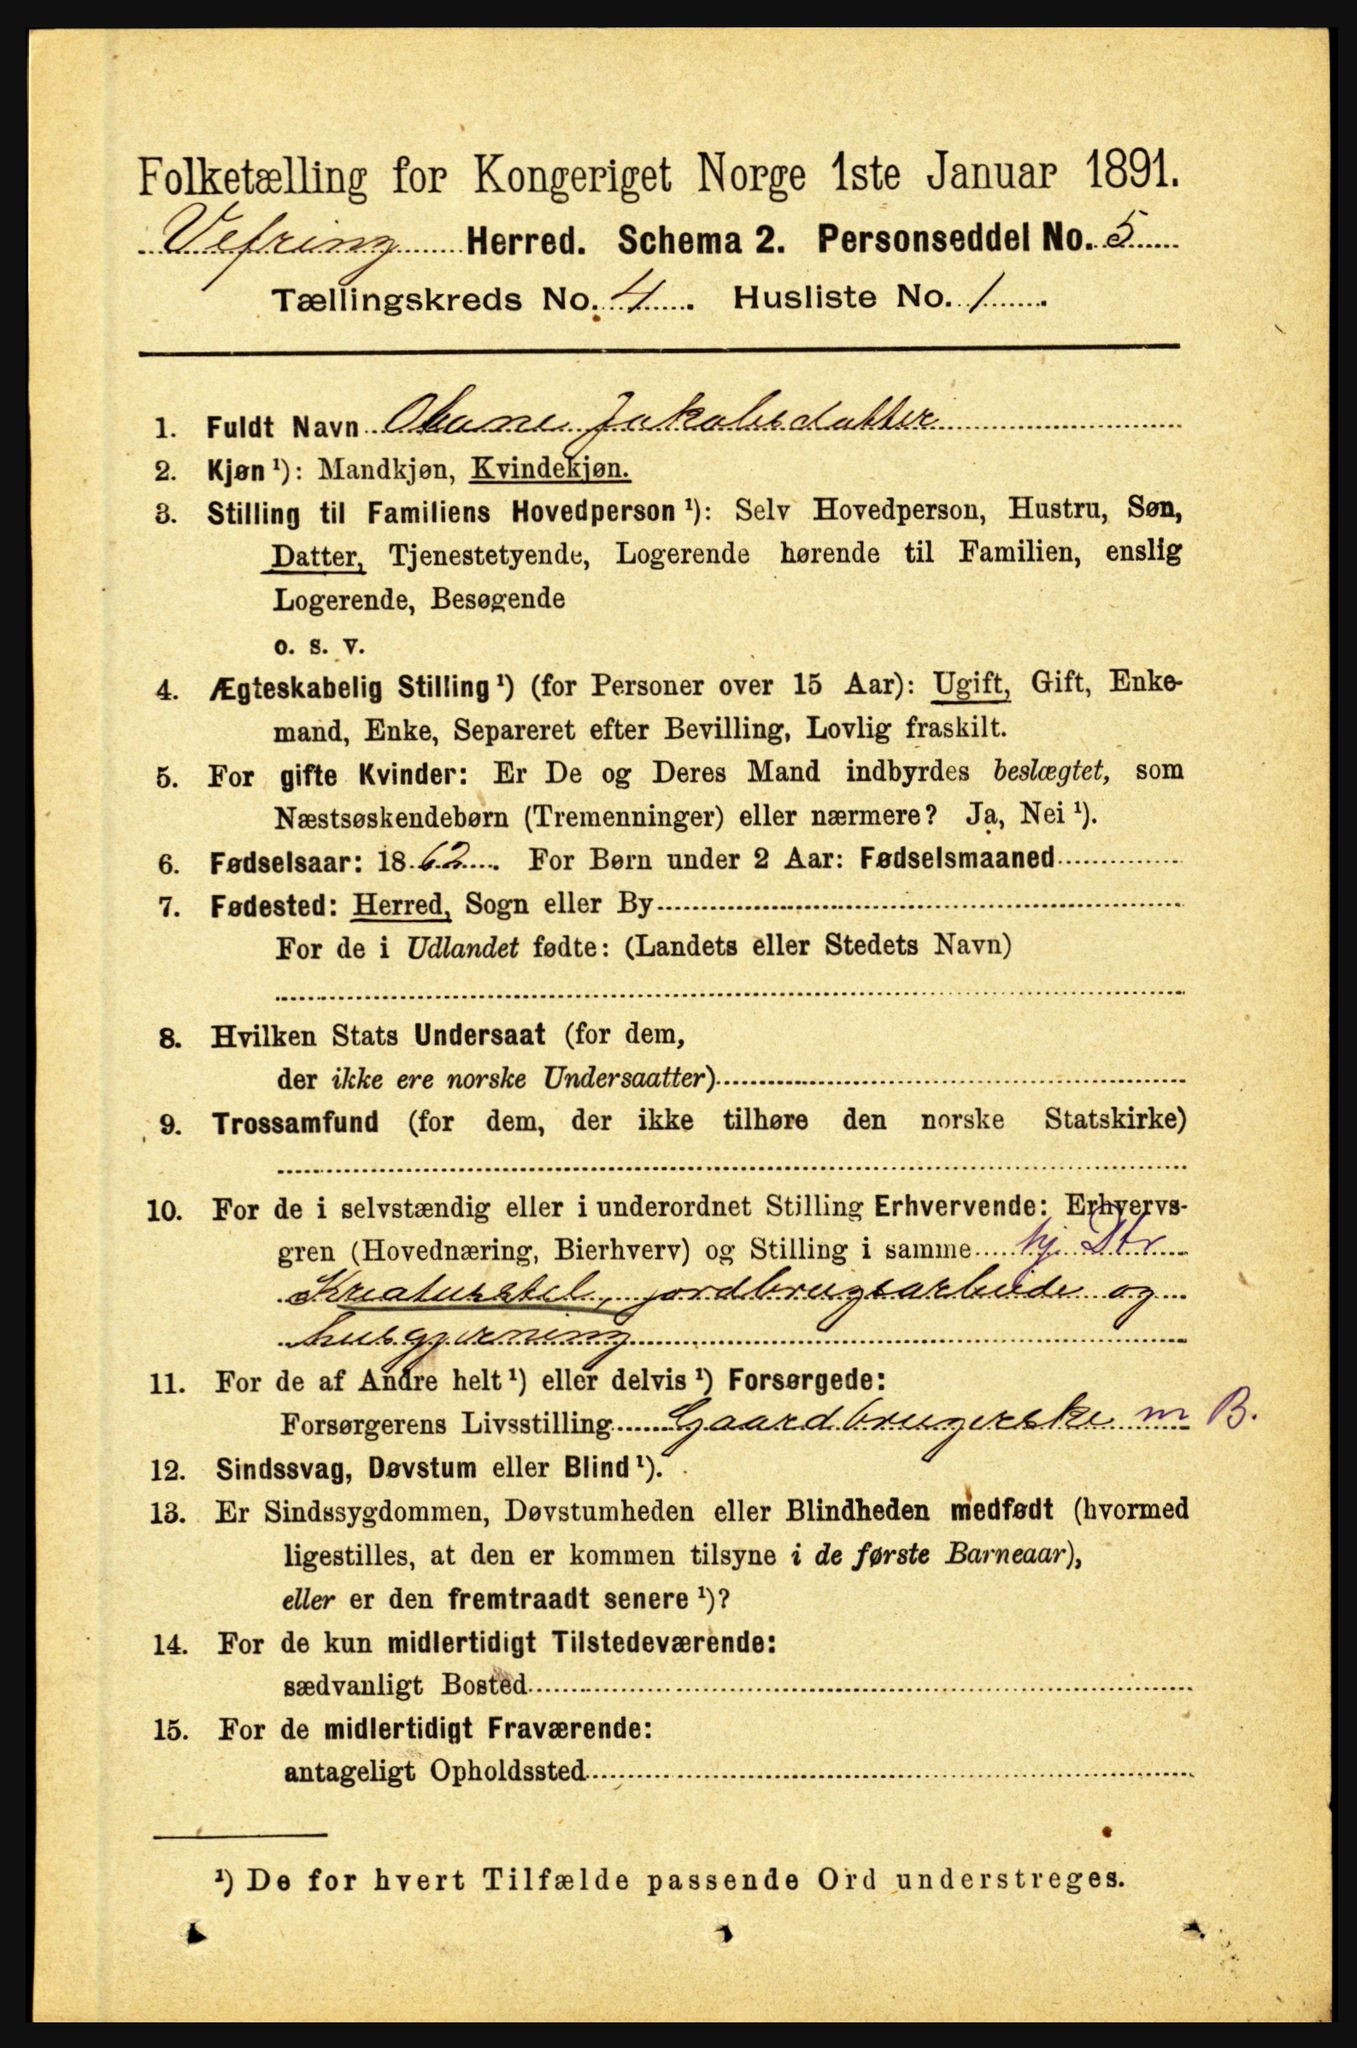 Folketælling for Kongeriget Norge 1ste Januar 1891.
Vefring Herred. Schema 2. Personseddel No. 5
Tællingskreds No. 4. Husliste No. 1.
1. Fuldt Navn Jakobsdatter
2. Kjøn ¹): Mandkjøn, Kvindekjøn.
3. Stilling til Familiens Hovedperson ¹): Selv Hovedperson, Hustru, Søn,
Datter, Tjenestetyende, Logerende hørende til Familien, enslig
Logerende, Besøgende
o. s. v.
4. Ægteskabelig Stilling ¹) (for Personer over 15 Aar): Ugift, Gift, Enke-
mand, Enke, Separeret efter Bevilling, Lovlig fraskilt.
5. For gifte Kvinder: Er De og Deres Mand indbyrdes beslægtet, som
Næstsøskendebørn (Tremenninger) eller nærmere? Ja, Nei ¹).
6. Fødselsaar: 1862. For Børn under 2 Aar: Fødselsmaaned
7. Fødested: Herred, Sogn eller By
For de i Udlandet fødte: (Landets eller Stedets Navn)
8. Hvilken Stats Undersaat (for dem,
der ikke ere norske Undersaatter)
9. Trossamfund (for dem, der ikke tilhøre den norske Statskirke)
10. For de i selvstændig eller i underordnet Stilling Erhvervende: Erhvervs-
gren (Hovednæring, Bierhverv) og Stilling i samme hj. Dtr
Kreaturstel, jordbrugsarbeide og
husgjerning
11. For de af Andre helt ¹) eller delvis ¹) Forsørgede:
Forsørgerens Livsstilling Gaardbrugerske m B.
12. Sindssvag, Døvstum eller Blind ¹).
13. Er Sindssygdommen, Døvstumheden eller Blindheden medfødt (hvormed
ligestilles, at den er kommen tilsyne i de første Barneaar),
eller er den fremtraadt senere ¹)?
14. For de kun midlertidigt Tilstedeværende:
sædvanligt Bosted
15. For de midlertidigt Fraværende:
antageligt Opholdssted
¹) De for hvert Tilfælde passende Ord understreges.